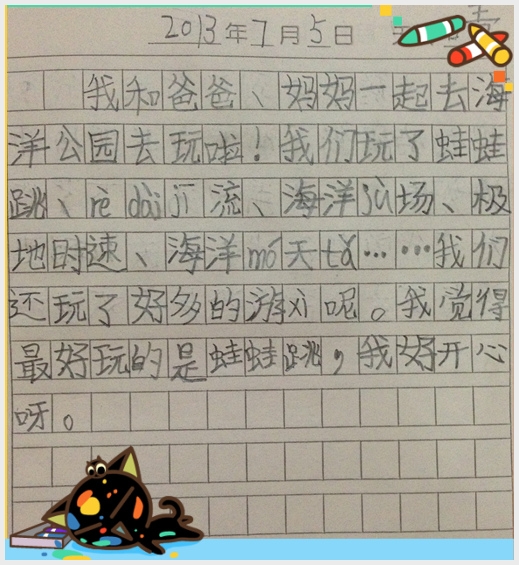 2013年7月5日
我和爸爸、妈妈一起去海
洋公园去玩啦！我们玩了蛙蛙
跳、rè dài jī 流、海洋jù场、极
地时速、海洋mó天tǎ……我们
还玩了好多的游xì呢。我觉得
最好玩的是蛙蛙跳，我好开心
呀。